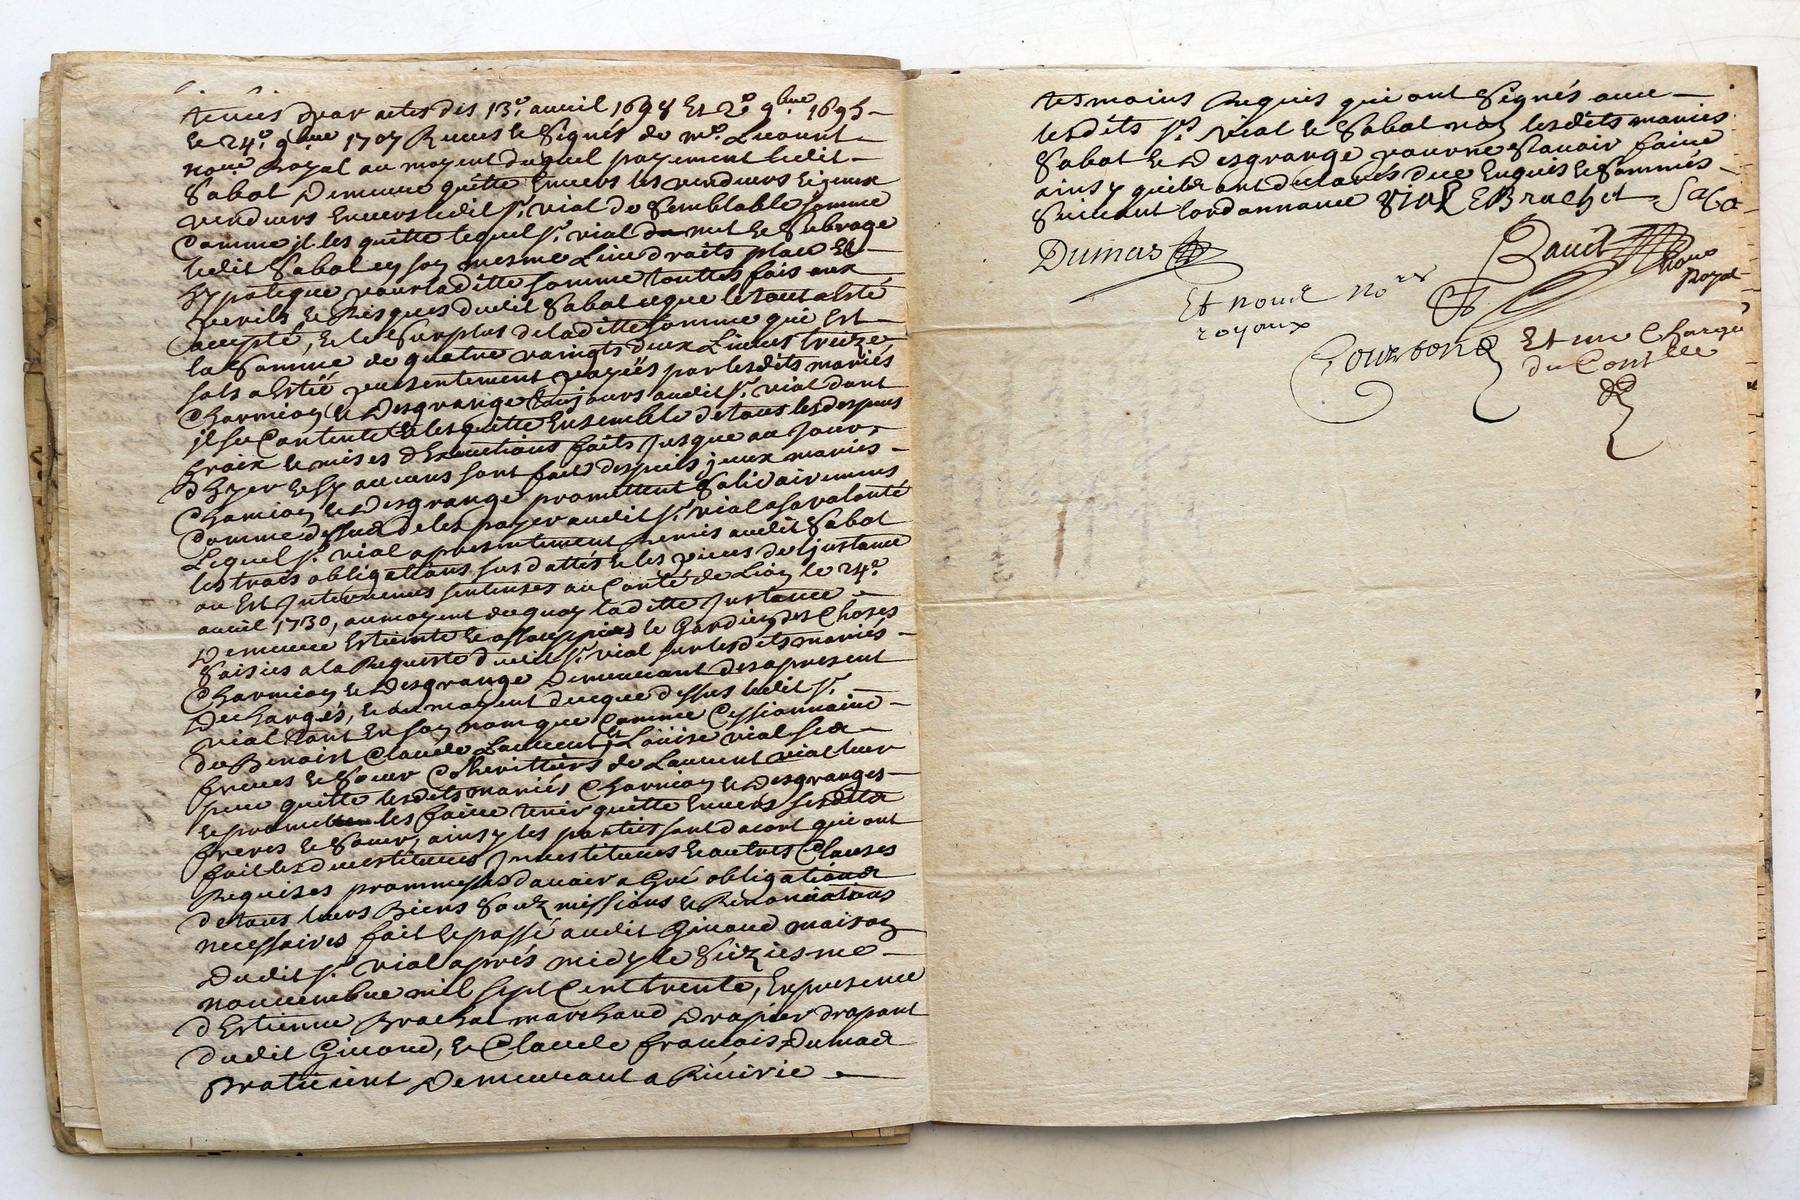 tenües par actes des 13.e avril 1694 Et 2.e 9bre 1695
le 24.e 9bre 1707 Recus & signés de me.
nore Royal au moyent duquel payement ledit
Sabot Demeure quitte Envers les vendeurs & jceux
vendeurs Envers ledit Sr. vial de semblable somme
Comme jl les quitte lequel Sr. vial met & subroge
ledit Sabot en son mesme Lieu droits place Et
hypoteque pour laditte somme touttes fois aux
perils & Risques dudit Sabot ce que le tout a Esté
accepté, & le surplus de laditte somme qui Est
la somme de quatre vaingts deux Livres treize
sols a Estée presentement payée par lesdits mariés
Charmion & Desgrange toujours audit Sr. vial dont
jl se Contente & les quitte Ensemble de tous les despens
fraix & mises d'Executions faits jusque au jour
d'hyer & sy aucuns sont faits despuis jceux mariés
Charmion & Desgrange promettent solidairement
Comme dessus de les payer audit Sr. vial a sa volonté
Lequel Sr. vial a presentement Remis audit Sabot
les trois obligations sus dattés & les pieces de l'jnstance
ou Est Intervenues sentenses au Conté de Lion le 24.e
avril 1730, au moyent de quoy laditte Instance
Demeure Esteinte & assouppies le Gardien des Choses
Saisies a la Requeste dudit Sr. vial sur lesdits mariés
Charmion & Desgrange Demeurant des a present
Dechargés, & au moyent de ce que dessus ledit Sr.
vial tant En son nom que Comme Cessionnaire
de Benoist Claude Laurent & Loüise vial ses
freres & soeur Coheritiers de Laurent vial leur
pere quitte lesdits mariés Charmion & Desgranges
& promet les faire tenir quitte Envers sesdits
freres & soeur, ainsy les parties sont d'acort qui ont
fait les devestitures Investitures & autres Clauses
Requises prommesses d'avoir a Gré obligations
de tous leurs Biens soubmissions & Renonciations
necessaires fait & passé audit Girond maison
Dudit Sr. vial après midy le sizieme
nouvembre mil sept Cent trente, En presence
d'Estienne Brachet marchand Drapier drapant
dudit Girond, & Claude francois Dumas
praticient Demeurant a Riverie
tesmoins Requis qui ont signés avec
lesdits Srs. vial & Sabot non lesdits mariés
Sabot & Desgrange pour ne sçavoir faire
ainsy qu'ils ont declarés de ce Enquis & sommés
suivant l'ordonnance Vial E Brachet Sabo
Dumas
Et nous nores
royaux
nore
Royal
Courbon
Et me Charge
du Conlle